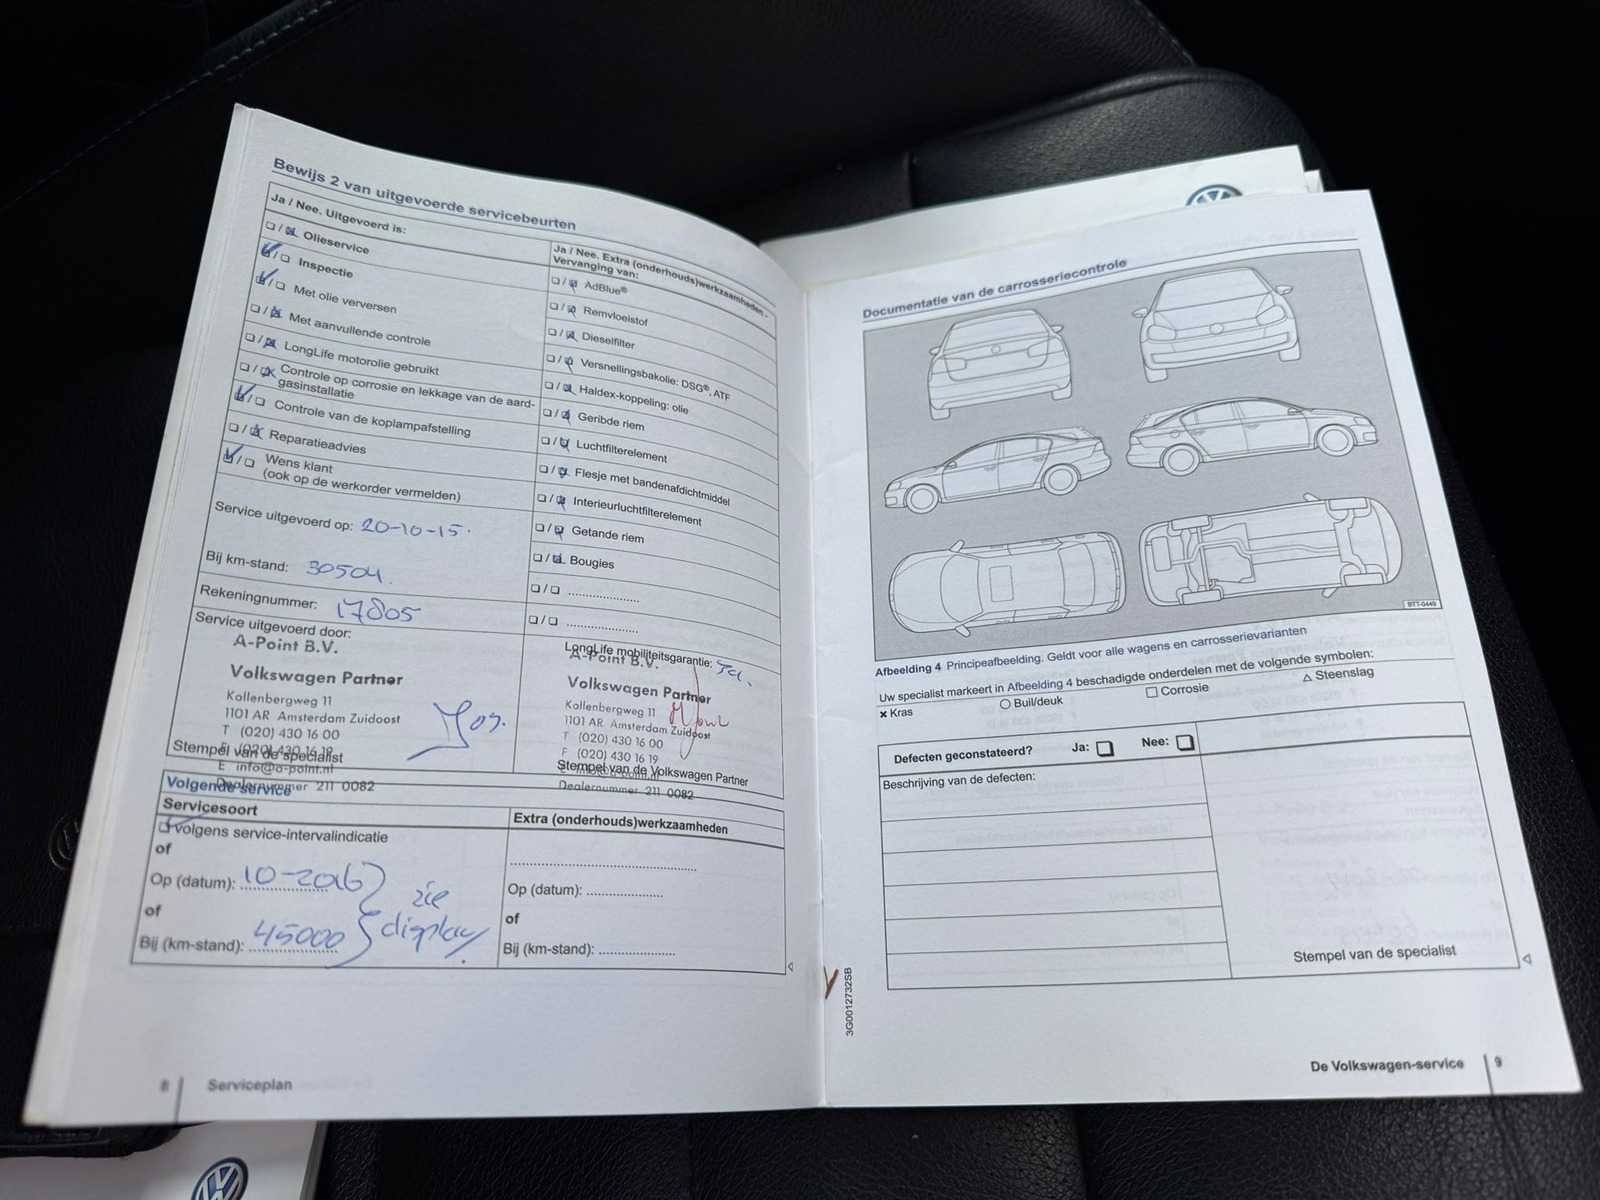 Bewijs 2 van uitgevoerde servicebeurten
Ja / Nee. Uitgevoerd is:
Olieservice
Inspectie
Met olie verversen
Met aanvullende controle
LongLife motorolie gebruikt
Controle op corrosie en lekkage van de aard-
gasinstallatie
Controle van de koplampafstelling
Reparatieadvies
Wens klant
(ook op de werkorder vermelden)
Service uitgevoerd op: 20-10-15.
Bij km-stand: 30504
Rekeningnummer: 17805
Service uitgevoerd door:
A-Point B.V.
Volkswagen Partner
Kollenbergweg 11
1101 AR Amsterdam Zuidoost
T (020) 430 16 00
F (020) 430 16 19
Stempel van de specialist
E info@a-point.nl
Dealernummer 211 0082
Ja / Nee. Extra (onderhouds)werkzaamheden -
Vervanging van:
AdBlue®
Remvloeistof
Dieselfilter
Versnellingsbakolie: DSG®, ATF
Haldex-koppeling: olie
Geribde riem
Luchtfilterelement
Flesje met bandenafdichtmiddel
Interieurluchtfilterelement
Getande riem
Bougies
LongLife mobiliteitsgarantie: Ja.
A-Point B.V.
Volkswagen Partner
Kollenbergweg 11
1101 AR Amsterdam Zuidoost
T (020) 430 16 00
F (020) 430 16 19
Stempel van de Volkswagen Partner
Dealernummer 211 0082
Volgende service
Servicesoort
volgens service-intervalindicatie
of
Op (datum): 10-2016
of
Bij (km-stand): 45000
zie
display
Extra (onderhouds)werkzaamheden
Op (datum):
of
Bij (km-stand):
8 Serviceplan
Documentatie van de carrosseriecontrole
BTT-0449
Afbeelding 4 Principeafbeelding. Geldt voor alle wagens en carrosserievarianten
Uw specialist markeert in Afbeelding 4 beschadigde onderdelen met de volgende symbolen:
Kras Buil/deuk Corrosie Steenslag
Defecten geconstateerd? Ja: Nee:
Beschrijving van de defecten:
Stempel van de specialist
3G0012732SB
De Volkswagen-service 9